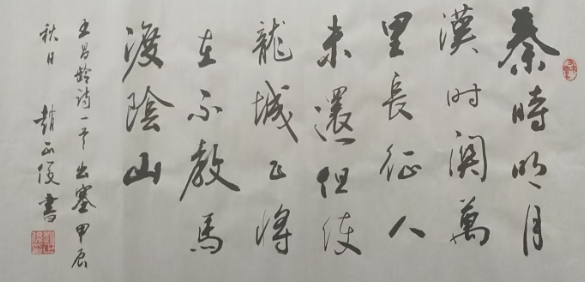 秦時明月
漢时關萬
里長征人
未還但使
龍城飞将
在不教馬
渡陰山
王昌龄诗一首出塞甲辰
秋日 趙正俊書